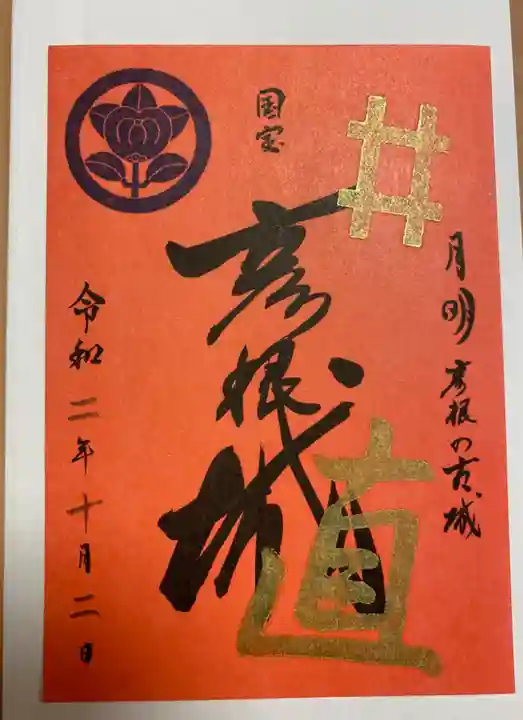 月明 彦根の古城
国宝
彦根城
井
直
令和二年十月二日